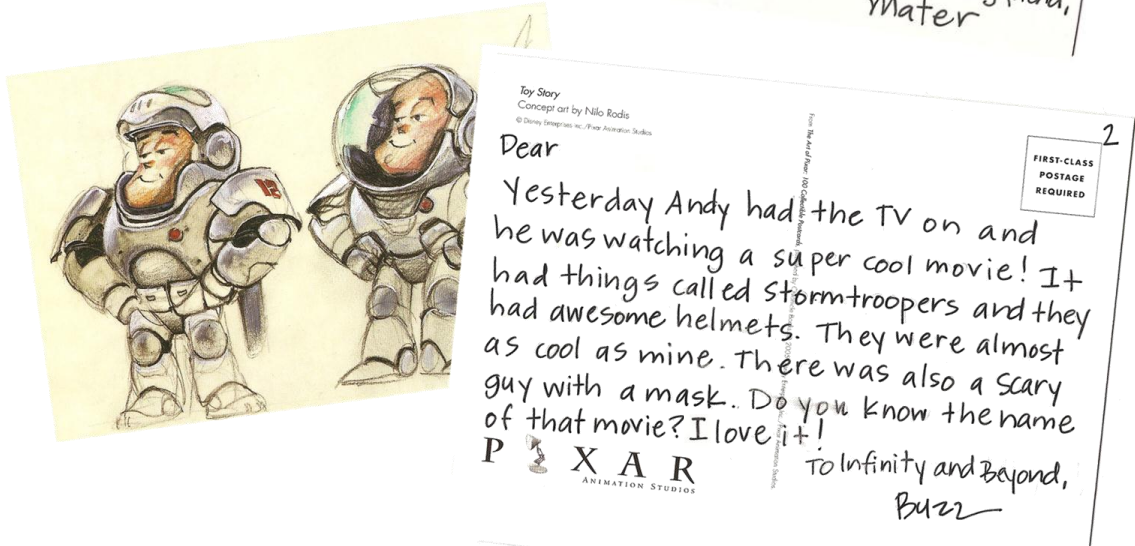 Mater
Toy Story
Concept art by Nilo Rodis
© Disney Enterprises Inc./Pixar Animation Studios
2
FIRST-CLASS
POSTAGE
REQUIRED
Dear
Yesterday Andy had the TV on and
he was watching a super cool movie! It
had things called Stormtroopers and they
had awesome helmets. They were almost
as cool as mine. There was also a scary
guy with a mask. Do you know the name
of that movie? I love it!
To Infinity and Beyond,
Buzz
PIXAR
ANIMATION STUDIOS
From The Art of Pixar: 100 Collectible Postcards.